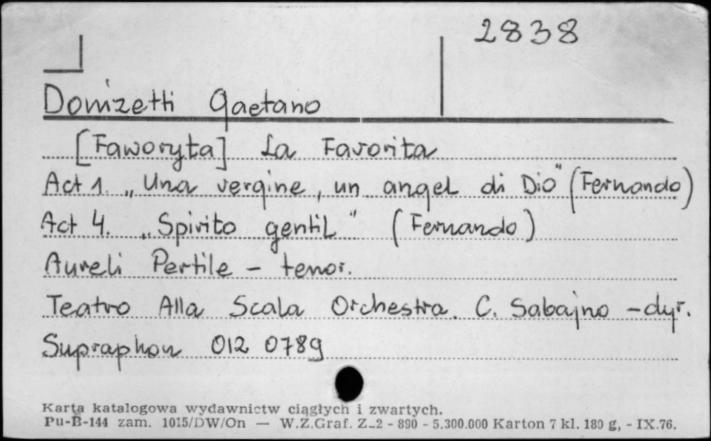 2838
Donizetti Gaetano
[Faworyta] La Favorita
Act 1. „Una vergine, un angel di Dio" (Fernando)
Act 4. „Spirito gentil" (Fernando)
Aureli Pertile - tenor.
Teatro Alla Scala Orchestra. C. Sabajno - dyr.
Supraphon 012 0789
Karta katalogowa wydawnictw ciągłych i zwartych.
Pu-B-144 zam. 1015/DW/On — W.Z.Graf. Z-2 - 890 - 5.300.000 Karton 7 kl. 180 g, - IX.76.